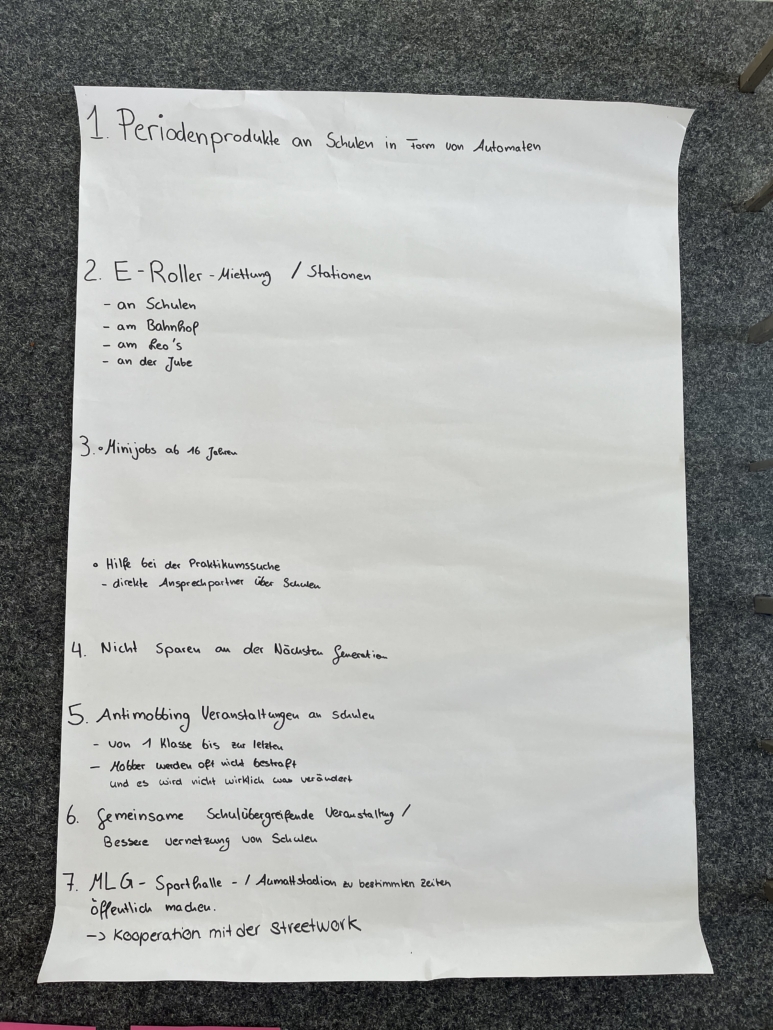 1. Periodenprodukte an Schulen in Form von Automaten
2. E-Roller-Miettung / Stationen
- an Schulen
- am Bahnhof
- am Leo's
- an der Jube
3. • Minijobs ab 16 Jahren
• Hilfe bei der Praktikumssuche
- direkte Ansprechpartner über Schulen
4. Nicht Sparen an der Nächsten Generation
5. Antimobbing Veranstaltungen an Schulen
- von 1 Klasse bis zur letzten
- Mobber werden oft nicht bestraft
und es wird nicht wirklich was verändert
6. Gemeinsame Schulübergreifende Veranstaltung /
Bessere vernetzung von Schulen
7. MLG - Sporthalle - / Aumattstadion zu bestimmten Zeiten
öffentlich machen.
-> Kooperation mit der Streetwork